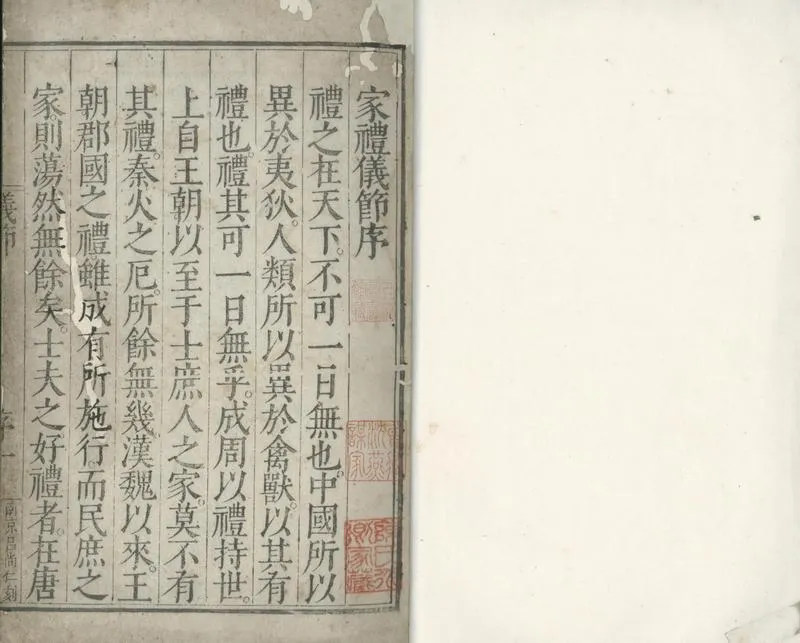 家禮儀節序
禮之在天下。不可一日無也。中國所以
異於夷狄。人類所以異於禽獸。以其有
禮也。禮其可一日無乎。成周以禮持世。
上自王朝以至于士庶人之家。莫不有
其禮。秦火之厄。所餘無幾。漢魏以來。王
朝郡國之禮雖或有所施行。而民庶之
家。則蕩然無餘矣。士夫之好禮者。在唐
儀節
序
一